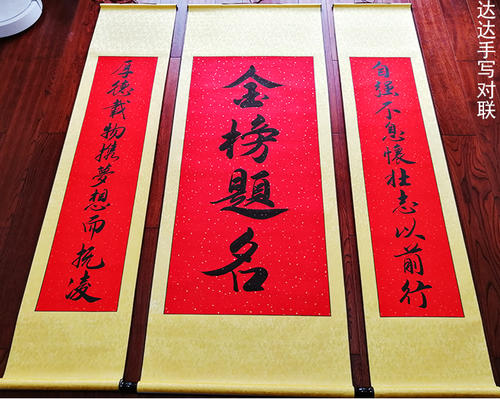 达达手写对联
自强不息懷壮志以前行
金榜题名
厚德載物携夢想而抚凌